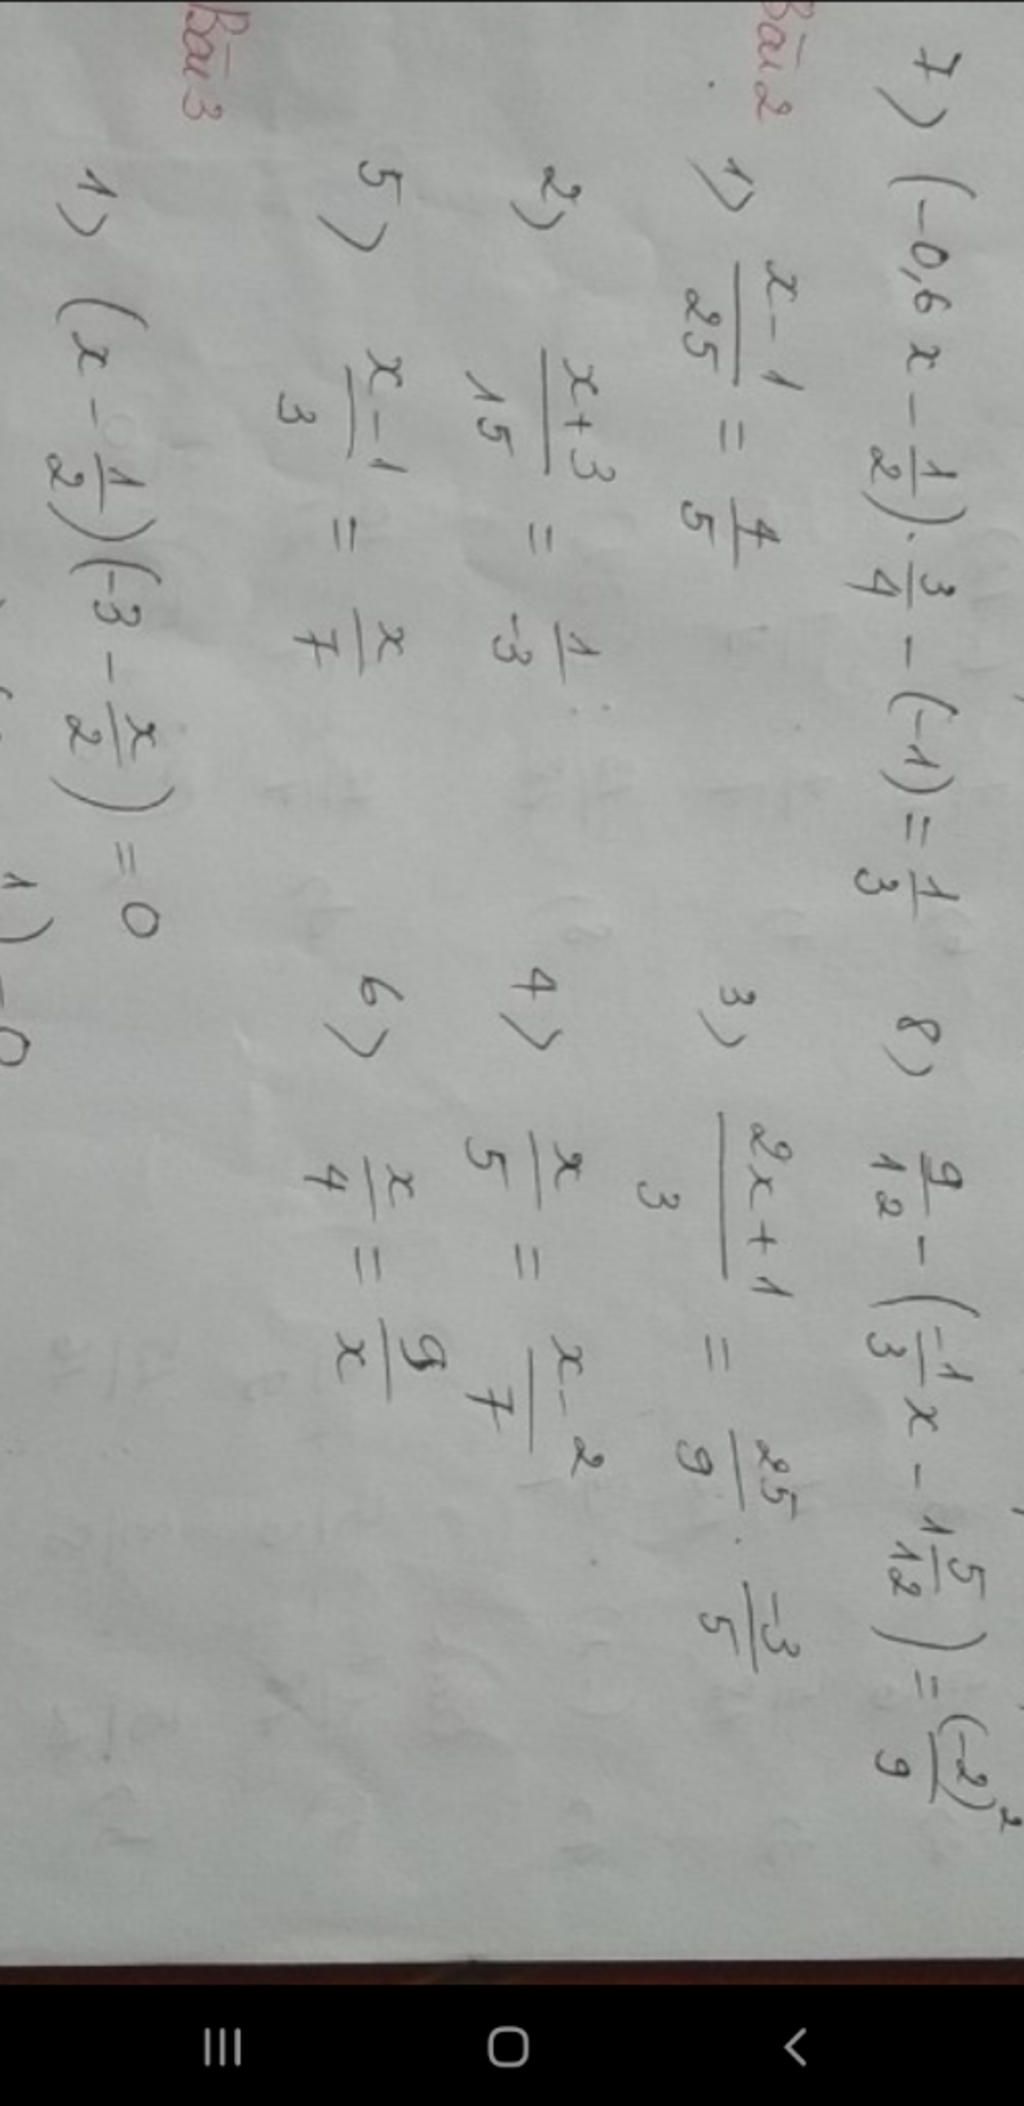 7) (-0,6 x - 1/2) . 3/4 - (-1) = 1/3 8) 9/12 - (-1/3 x - 1 5/12) = (-2)²/9
Bài 2
1) x-1/25 = 4/5 3) 2x+1/3 = 25/9 . -3/5
2) x+3/15 = 1/-3 4) x/5 = x-2/7
5) x-1/3 = x/7 6) x/4 = 9/x
Bài 3
1) (x - 1/2)(-3 - x/2) = 0